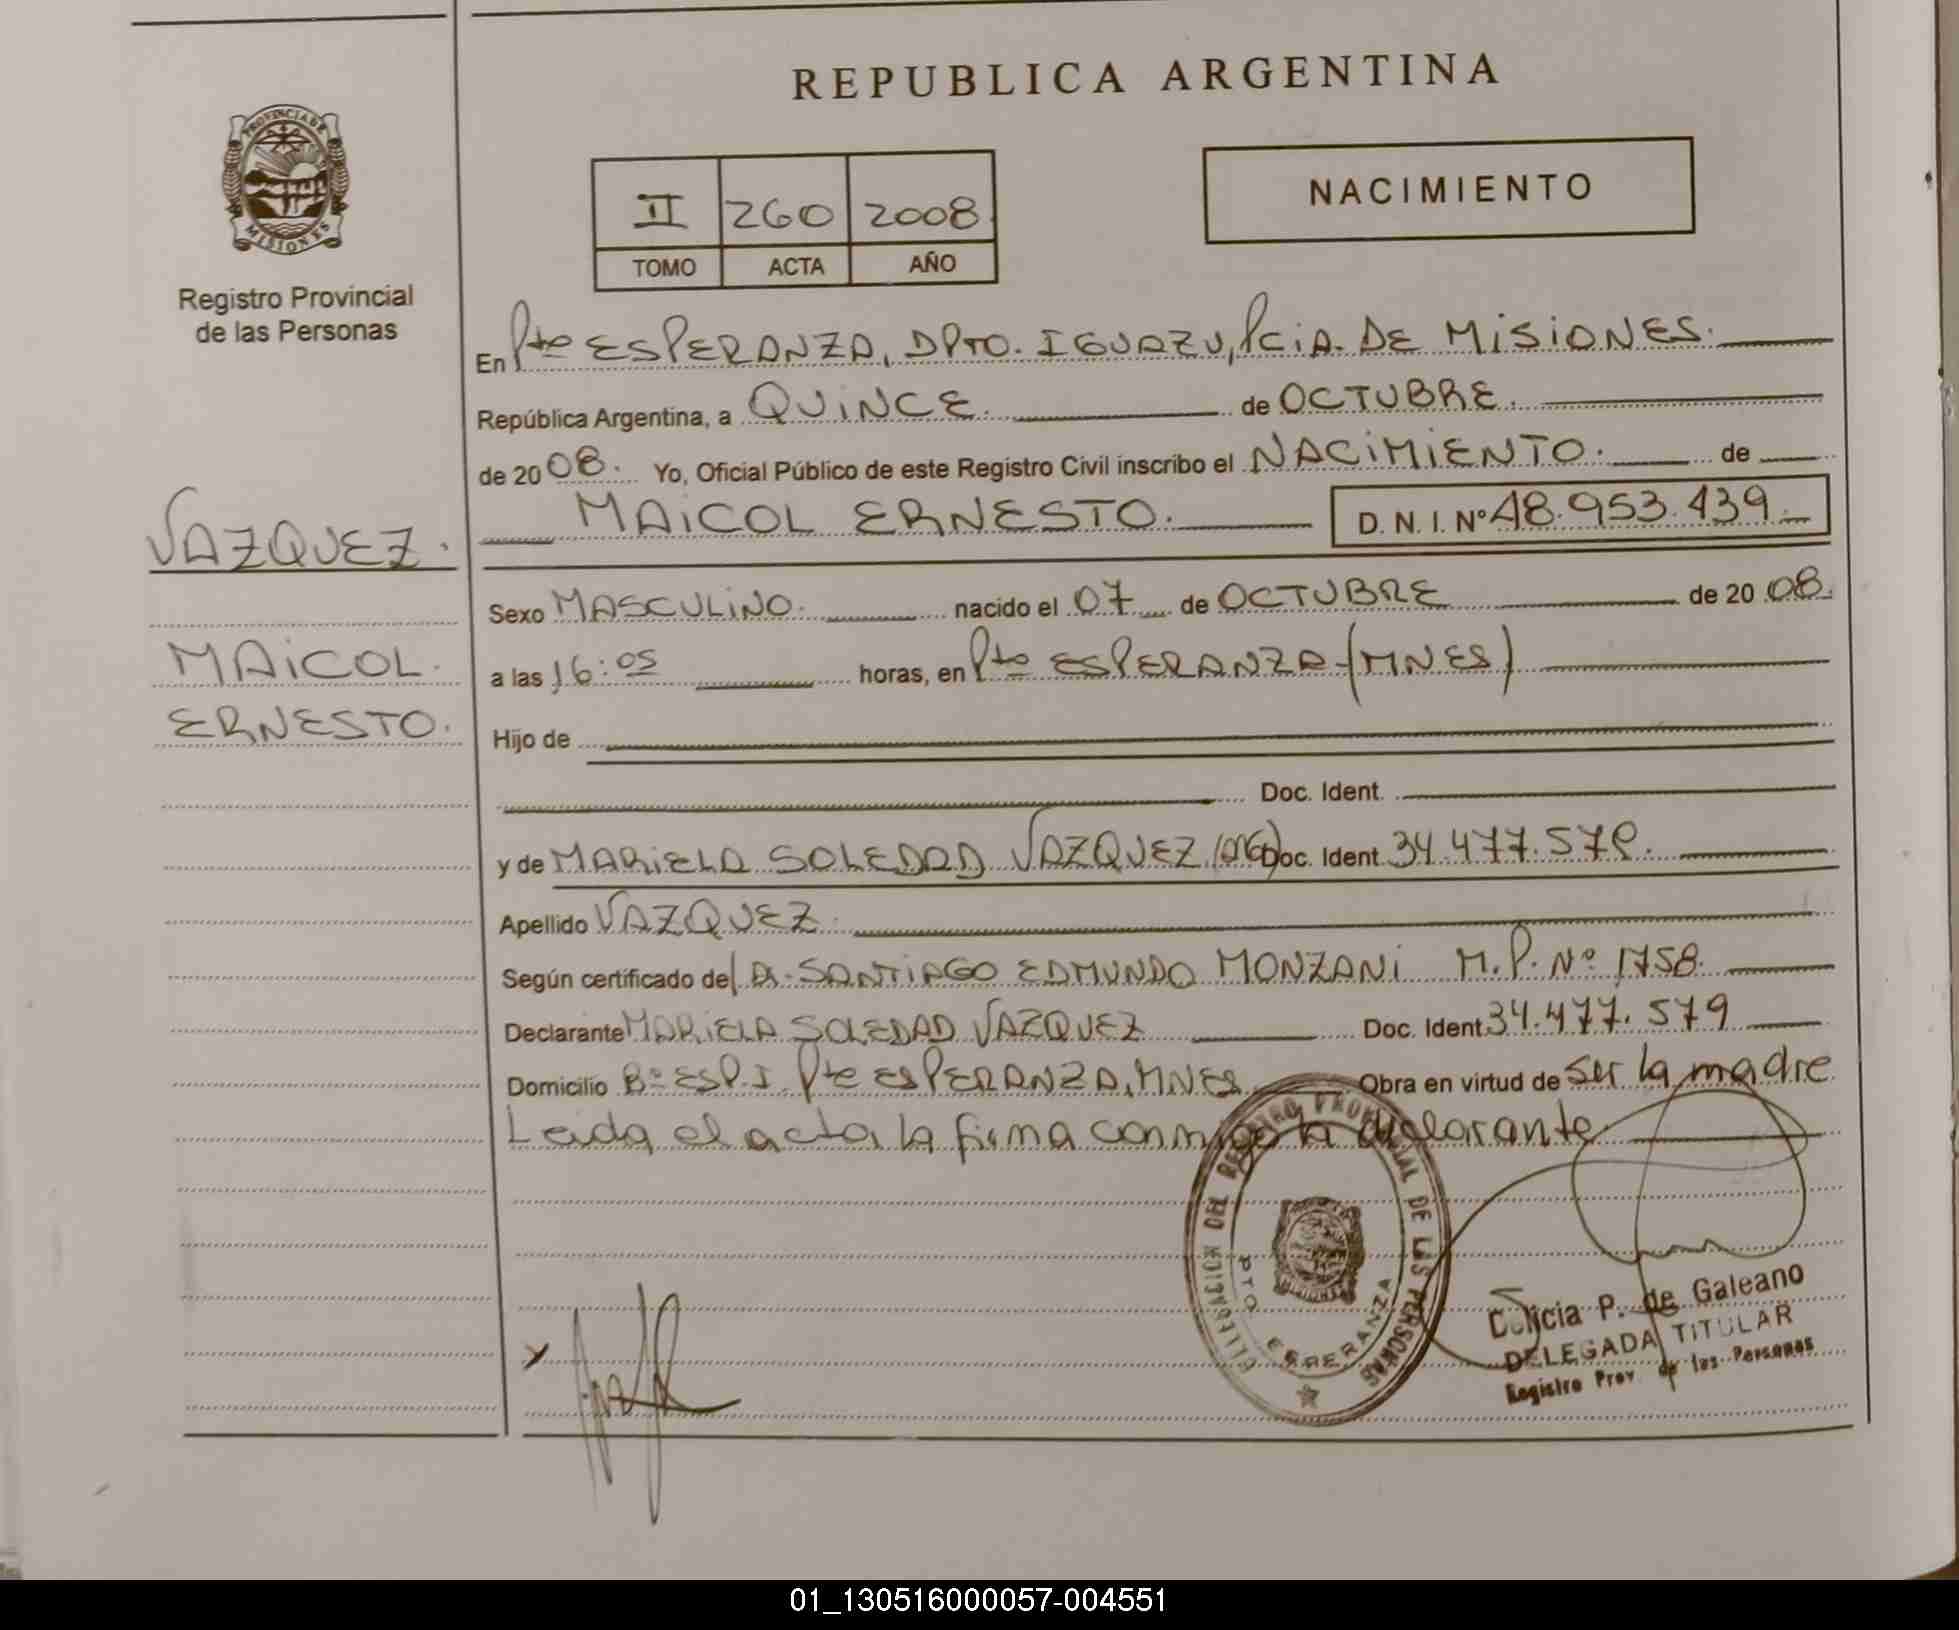 REPUBLICA ARGENTINA
PROVINCIA DE
MISIONES
Registro Provincial
de las Personas
II 260 2008
TOMO ACTA AÑO
NACIMIENTO
En Pto ESPERANZA, DPTO. IGUAZU, PCiA. DE MiSiONES.
República Argentina, a QUiNCE. de OCTUBRE.
de 2008. Yo, Oficial Público de este Registro Civil inscribo el NACiMiENTO. de
MAiCOL ERNESTO. D. N. I. Nº 48.953.439.
VAZQUEZ.
MAiCOL.
ERNESTO.
Sexo MASCULiNO. nacido el 07 de OCTUBRE de 2008.
a las 16:05 horas, en Pto ESPERANZA-(MNES)
Hijo de
Doc. Ident.
y de MARiELA SOLEDAD VAZQUEZ Doc. Ident. 34.477.579.
Apellido VAZQUEZ.
Según certificado del DR. SANTiAGO EDMUNDO MONZANi M.P. Nº 1758.
Declarante MARiELA SOLEDAD VAZQUEZ Doc. Ident. 34.477.579
Domicilio Bº ESP. I Pto ESPERANZA, MNES. Obra en virtud de ser la madre
Leida el acta la firma conmigo la declarante.
DELEGACION DEL REGISTRO PROVINCIAL DE LAS PERSONAS
PTO ESPERANZA
MISIONES
Delicia P. de Galeano
DELEGADA TITULAR
Registro Prov. de las Personas
01_130516000057-004551